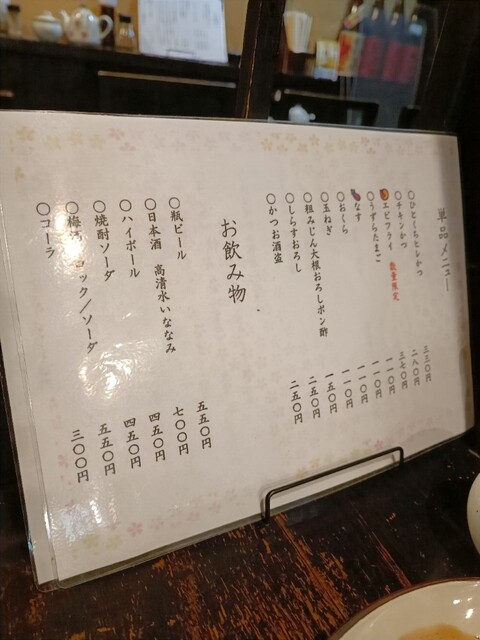 単品メニュー
○ひとくちヒレかつ 三三〇円
○チキンかつ 二八〇円
○エビフライ 数量限定 三七〇円
○うずらたまご 一一〇円
○なす 一一〇円
○おくら 一一〇円
○玉ねぎ 一一〇円
○粗みじん大根おろしポン酢 一五〇円
○しらすおろし 二五〇円
○かつお酒盗 二五〇円
お飲み物
○瓶ビール 五五〇円
○日本酒 高清水いななみ 七〇〇円
○ハイボール 四五〇円
○焼酎ソーダ 四五〇円
○梅酒 ロック/ソーダ 五五〇円
○コーラ 三〇〇円